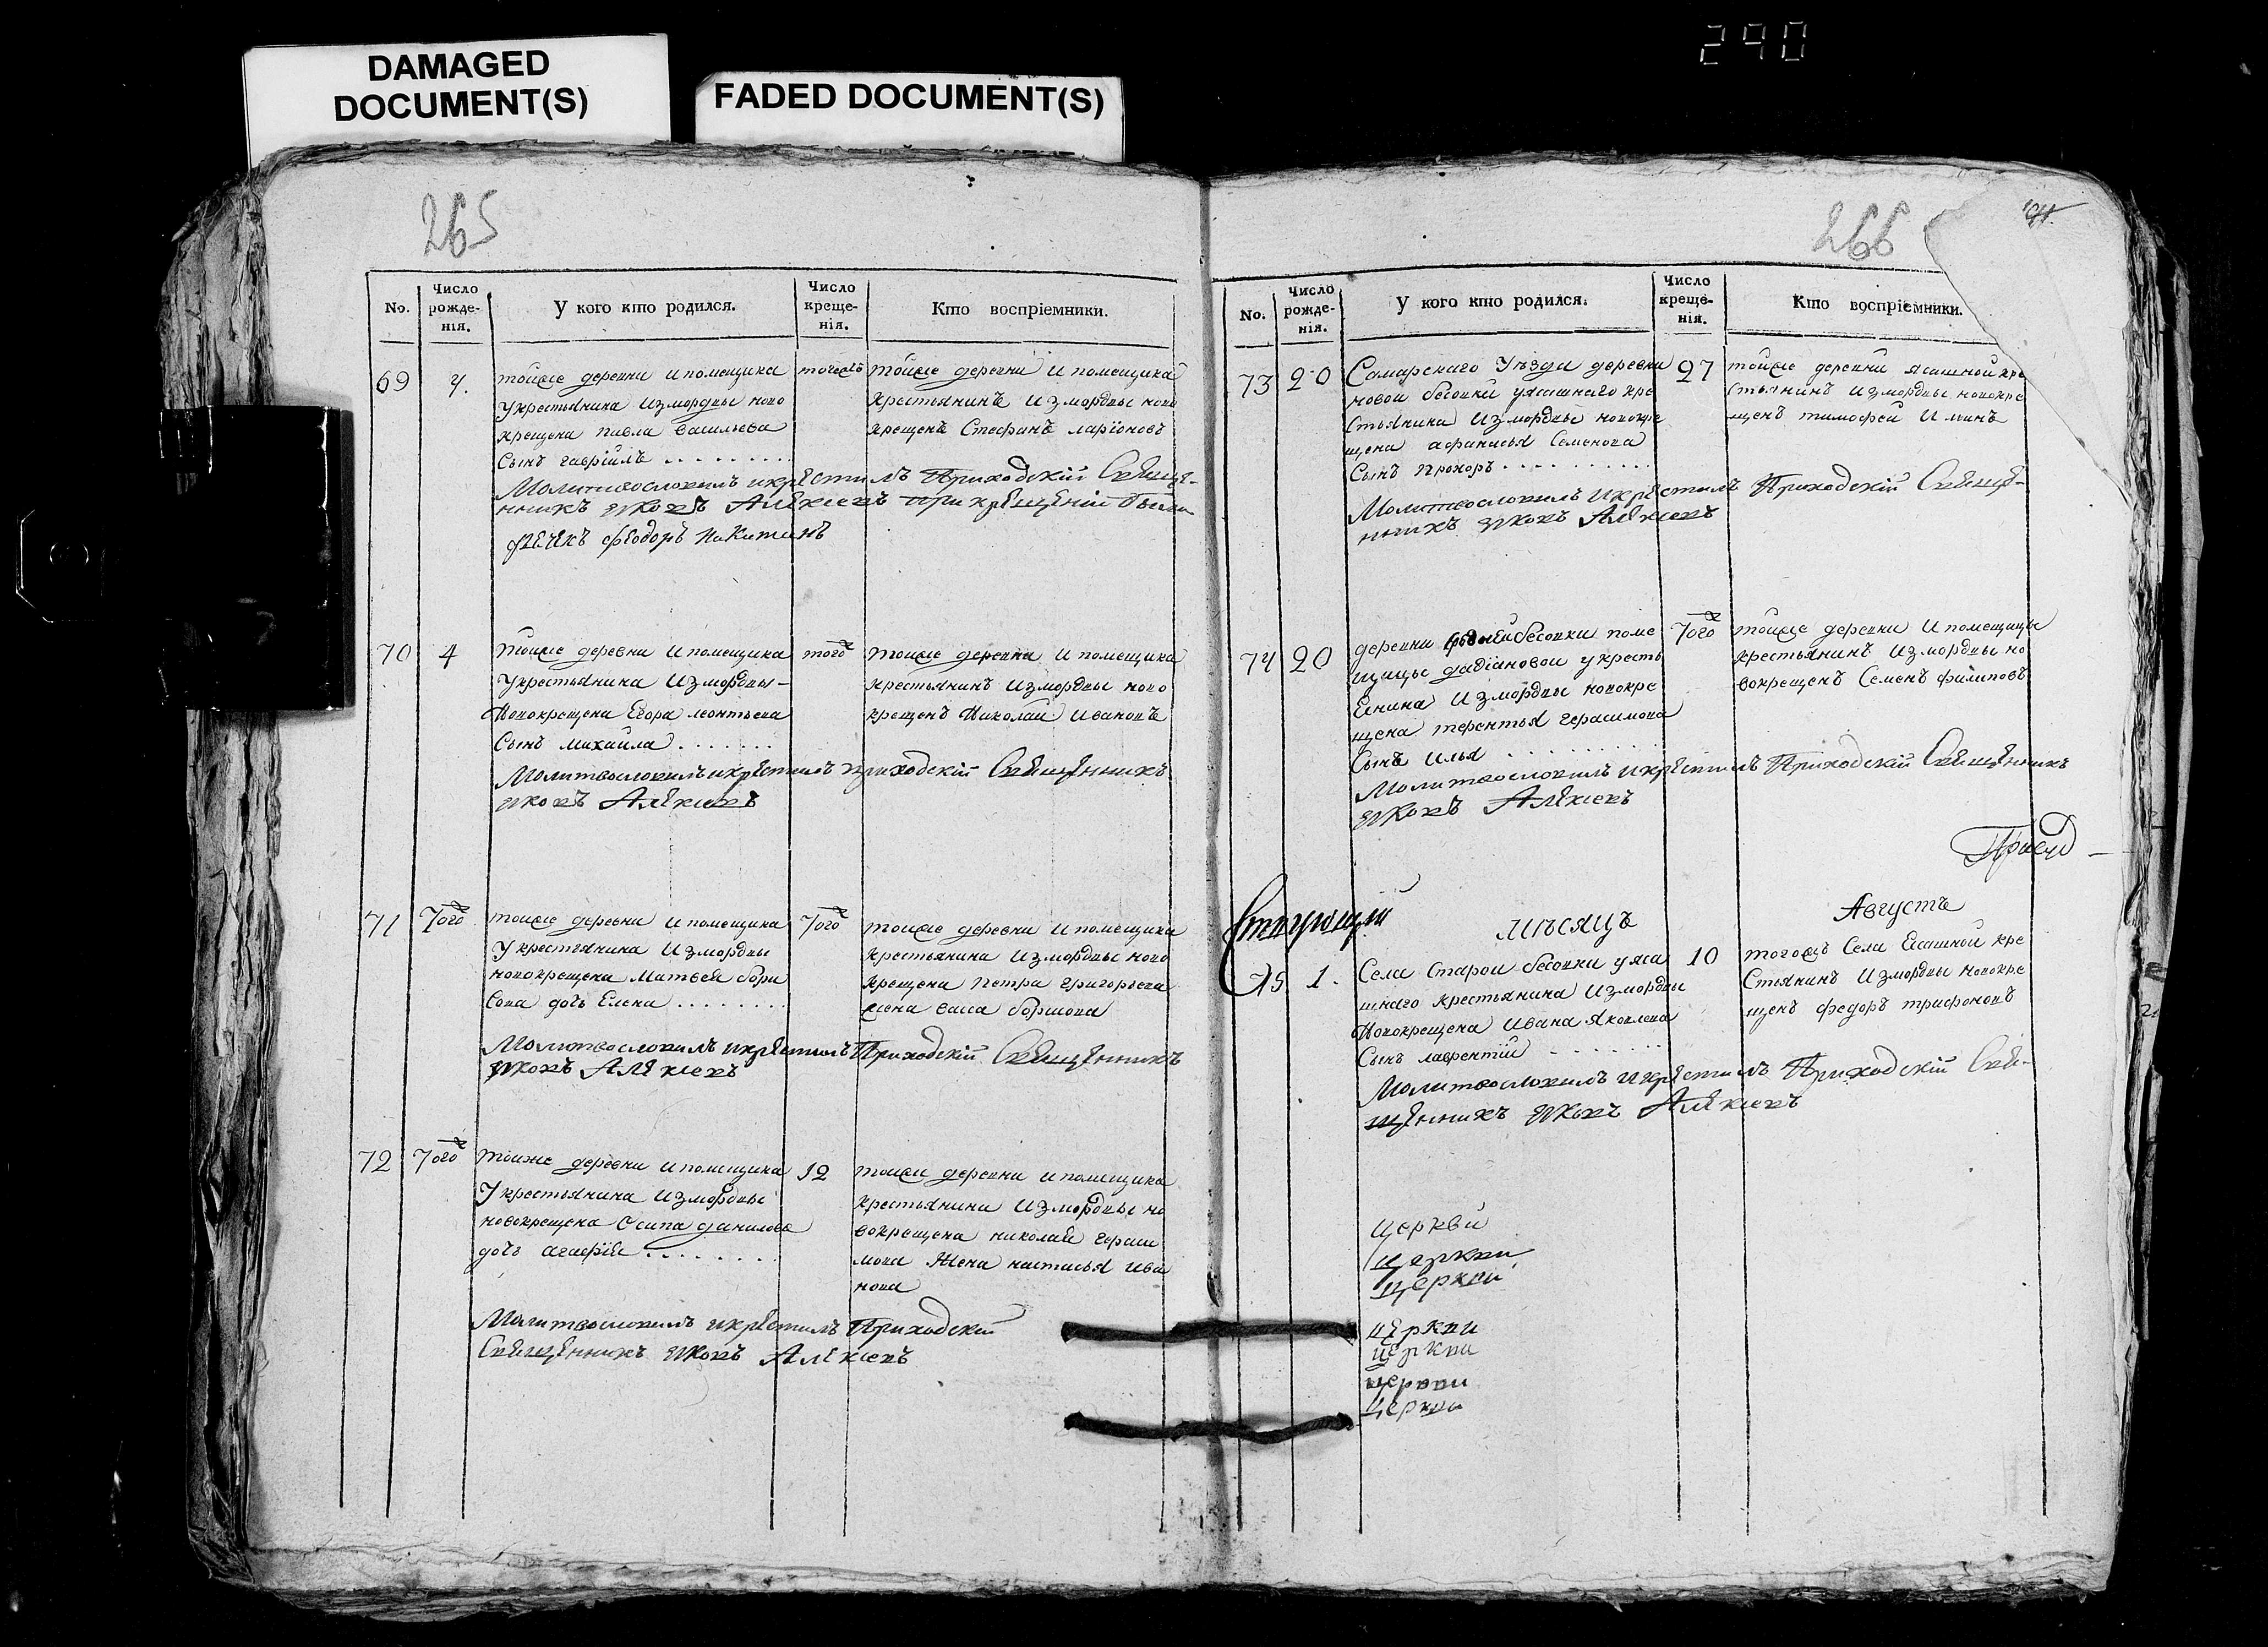 DAMAGED
DOCUMENT(S)
FADED DOCUMENT(S)
290
265
No.
Число рожде-нія.
У кого кто родился.
Число креще-нія.
Кто воспріемники.
69 4.
тойже деревни и помещика
у крестьянина из мордвы ново
крещена павла васильева
сынъ гаврiилъ . . . . . . . . .
тогожъ
тойже деревни и помещика
крестьянинъ из мордвы ново
крещенъ Стефанъ ларiоновъ
Молитвословилъ и крестилъ Приходскiй Свяще-
нникъ Яковъ Алексеевъ при крещенiи были
феодоръ Никитинъ
70 4
тойже деревни и помещика
у крестьянина из мордвы
Новокрещена Егора леонтьева
Сынъ михайла . . . . . . .
тогож
тойже деревни и помещика
крестьянинъ из мордвы ново
крещенъ Николай ивановъ
Молитвословилъ и крестилъ приходскiй Священникъ
Яковъ Алексеевъ
71 Тогож
тойже деревни и помещика
у крестьянина из мордвы
новокрещена Матвея бори
сова дочь Елена . . . . . . . .
Тогож
тойже деревни и помещика
крестьянина из мордвы ново
крещена петра григорьева
жена васса
Молитвословилъ и крестилъ Приходскiй Священникъ
Яковъ Алексеевъ
72 Тогож
тоиже деревни и помещика
у крестьянина из мордвы
новокрещена Осипа данилова
дочь агафiя . . . . . . . .
12
тойже деревни и помещика
крестьянина из мордвы но
вокрещена николая гераси
мова Жена настасья ива
нова
Молитвословилъ и крестилъ Приходскiй
Священникъ Яковъ Алексеевъ
266
No.
Число рожде-нія.
У кого кто родился.
Число креще-нія.
Кто воспріемники.
73 20
Самарскаго Уѣзда деревни
новой бесовки у ясашнаго кре
стьянина из мордвы новокре
щена афанасья Семенова
Сынъ прохоръ . . . . . . . . . .
27
тойже деревни ясашной кре
стьянинъ из мордвы новокре
щенъ тимофей
Молитвословилъ и крестилъ Приходскiй Свяще-
нникъ Яковъ Алексеевъ
74 20
деревни бесовки поме
щицы дадiановой у кресть
янина из мордвы новокре
щена терентья герасимова
Сынъ илья . . . . . . . . . .
Тогож
тойже деревни и помещицы
крестьянинъ из мордвы но
вокрещенъ Семенъ филиповъ
Молитвословилъ и крестилъ Приходскiй Священникъ
Яковъ Алексеевъ
мѣсяцъ
Августъ
75 1.
Села Старой бесовки у яса
шнаго крестьянина из мордвы
Новокрещена ивана яковлева
Сынъ лаврентiй . . . . . . .
10
тогожъ Села Ясашной кре
стьянинъ из мордвы новокре
щенъ федоръ трифоновъ
Молитвословилъ и крестилъ Приходскiй Свя-
щенникъ Яковъ Алексеевъ
церкви
церкви
церкви
церкви
церкви
церкви
церкви